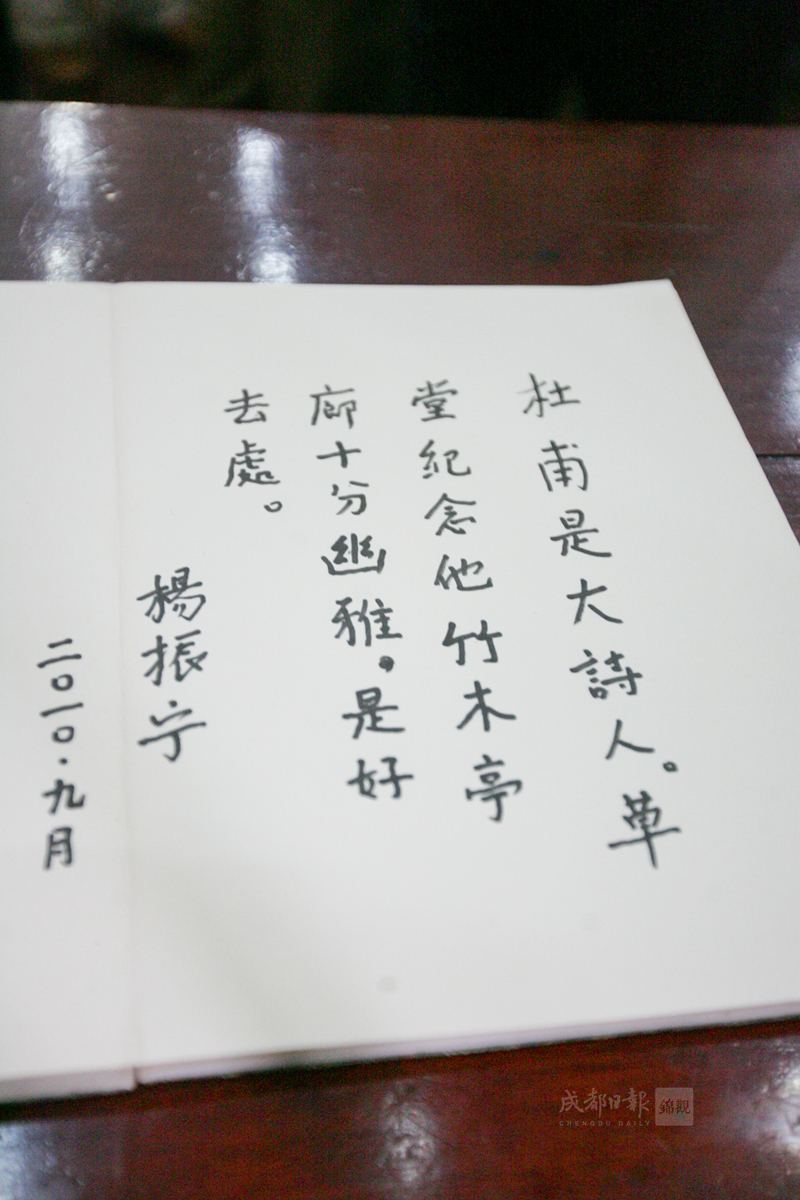 杜甫是大詩人。草
堂紀念他竹木亭
廊十分幽雅,是好
去處。
楊振宁
二〇一〇·九月
成都日報
錦觀
CHENGDU DAILY